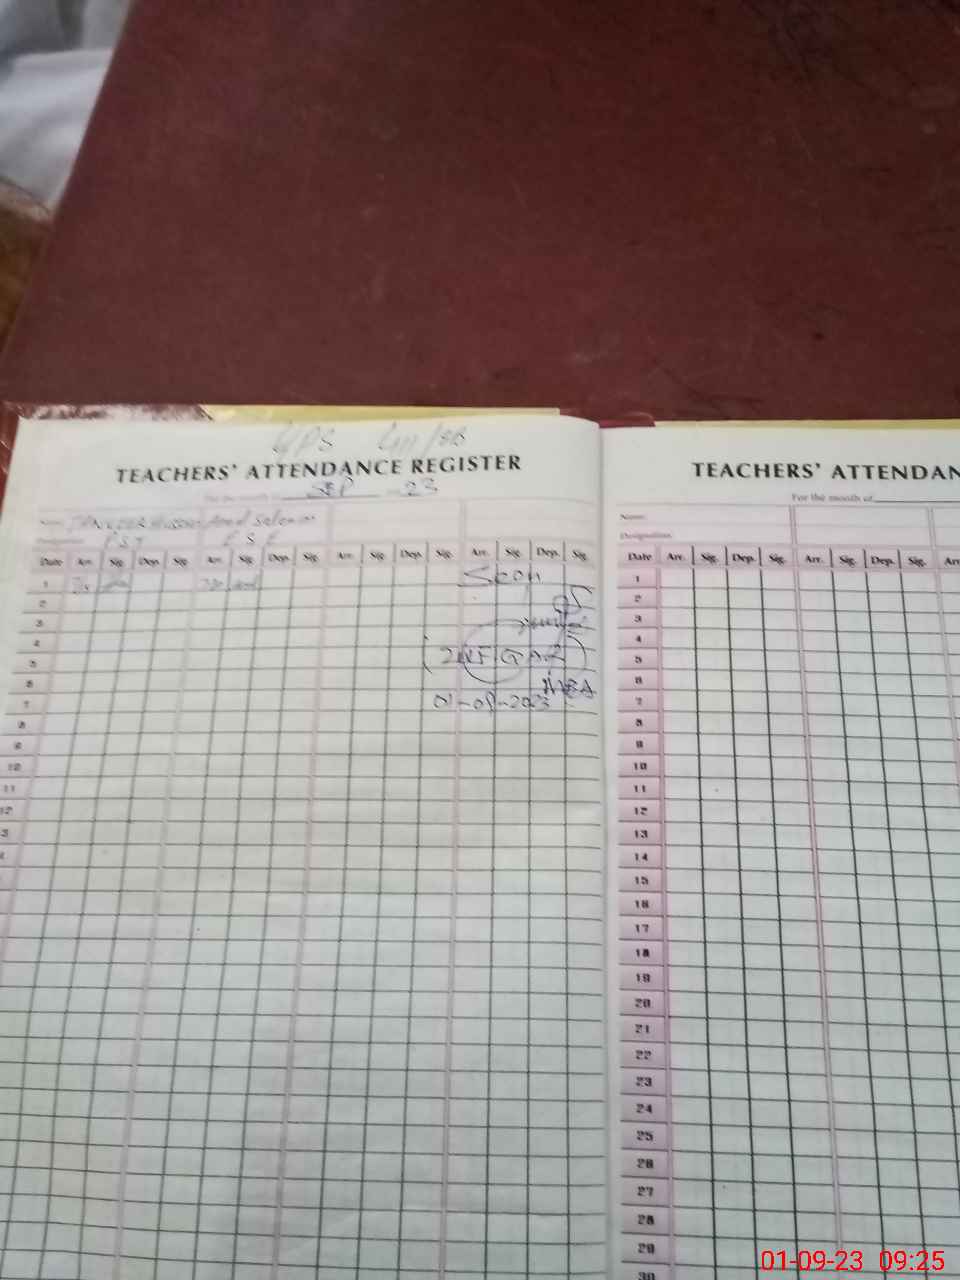 GPS 411/EB
TEACHERS' ATTENDANCE REGISTER
For the month of SEP - 23
Name
Designation P S T
Date Arr. Sig. Dep. Sig. Arr. Sig. Dep. Sig. Arr. Sig. Dep. Sig. Arr. Sig. Dep. Sig.
1
2
3
4
5
6
7
8
9
10
11
12
Seen
MEA
01-09-2023
TEACHERS' ATTENDAN
For the month of
Name:
Designation
Date Arr. Sig. Dep. Sig. Arr. Sig. Dep. Sig. Arr
1
2
3
4
5
6
7
8
9
10
11
12
13
14
15
16
17
18
19
20
21
22
23
24
25
26
27
28
29
30
01-09-23 09:25